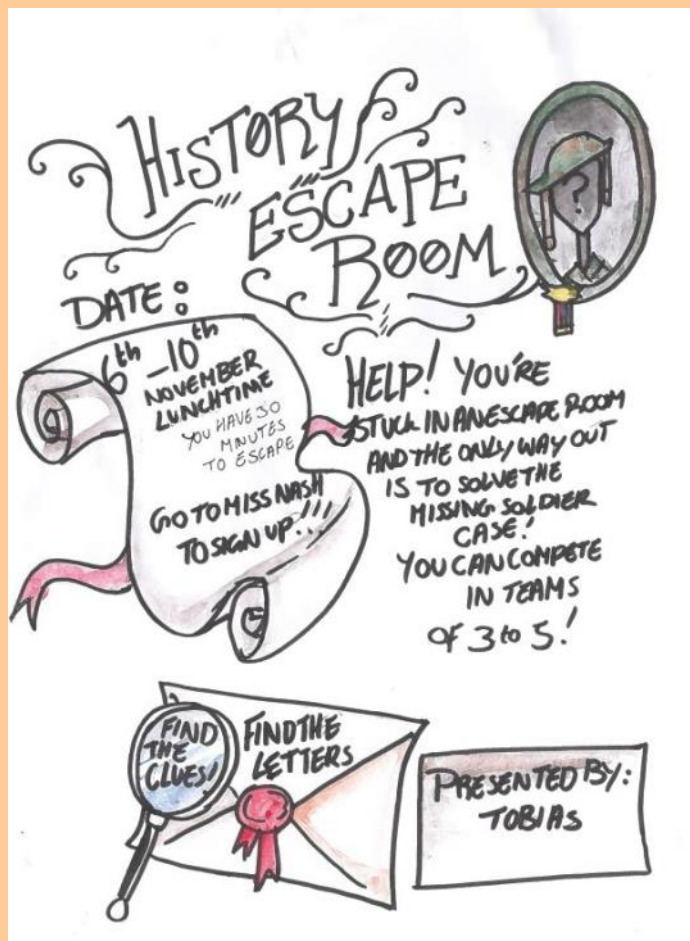 HISTORY
ESCAPE
ROOM
DATE:
6th - 10th
NOVEMBER
LUNCHTIME
YOU HAVE 30
MINUTES
TO ESCAPE
GO TO MISS NASH
TO SIGN UP...!!!
HELP! YOU'RE
STUCK IN AN ESCAPE ROOM
AND THE ONLY WAY OUT
IS TO SOLVE THE
MISSING SOLDIER
CASE!
YOU CAN COMPETE
IN TEAMS
OF 3 to 5!
FIND
THE
CLUES!
FIND THE
LETTERS
PRESENTED BY:
TOBIAS
?